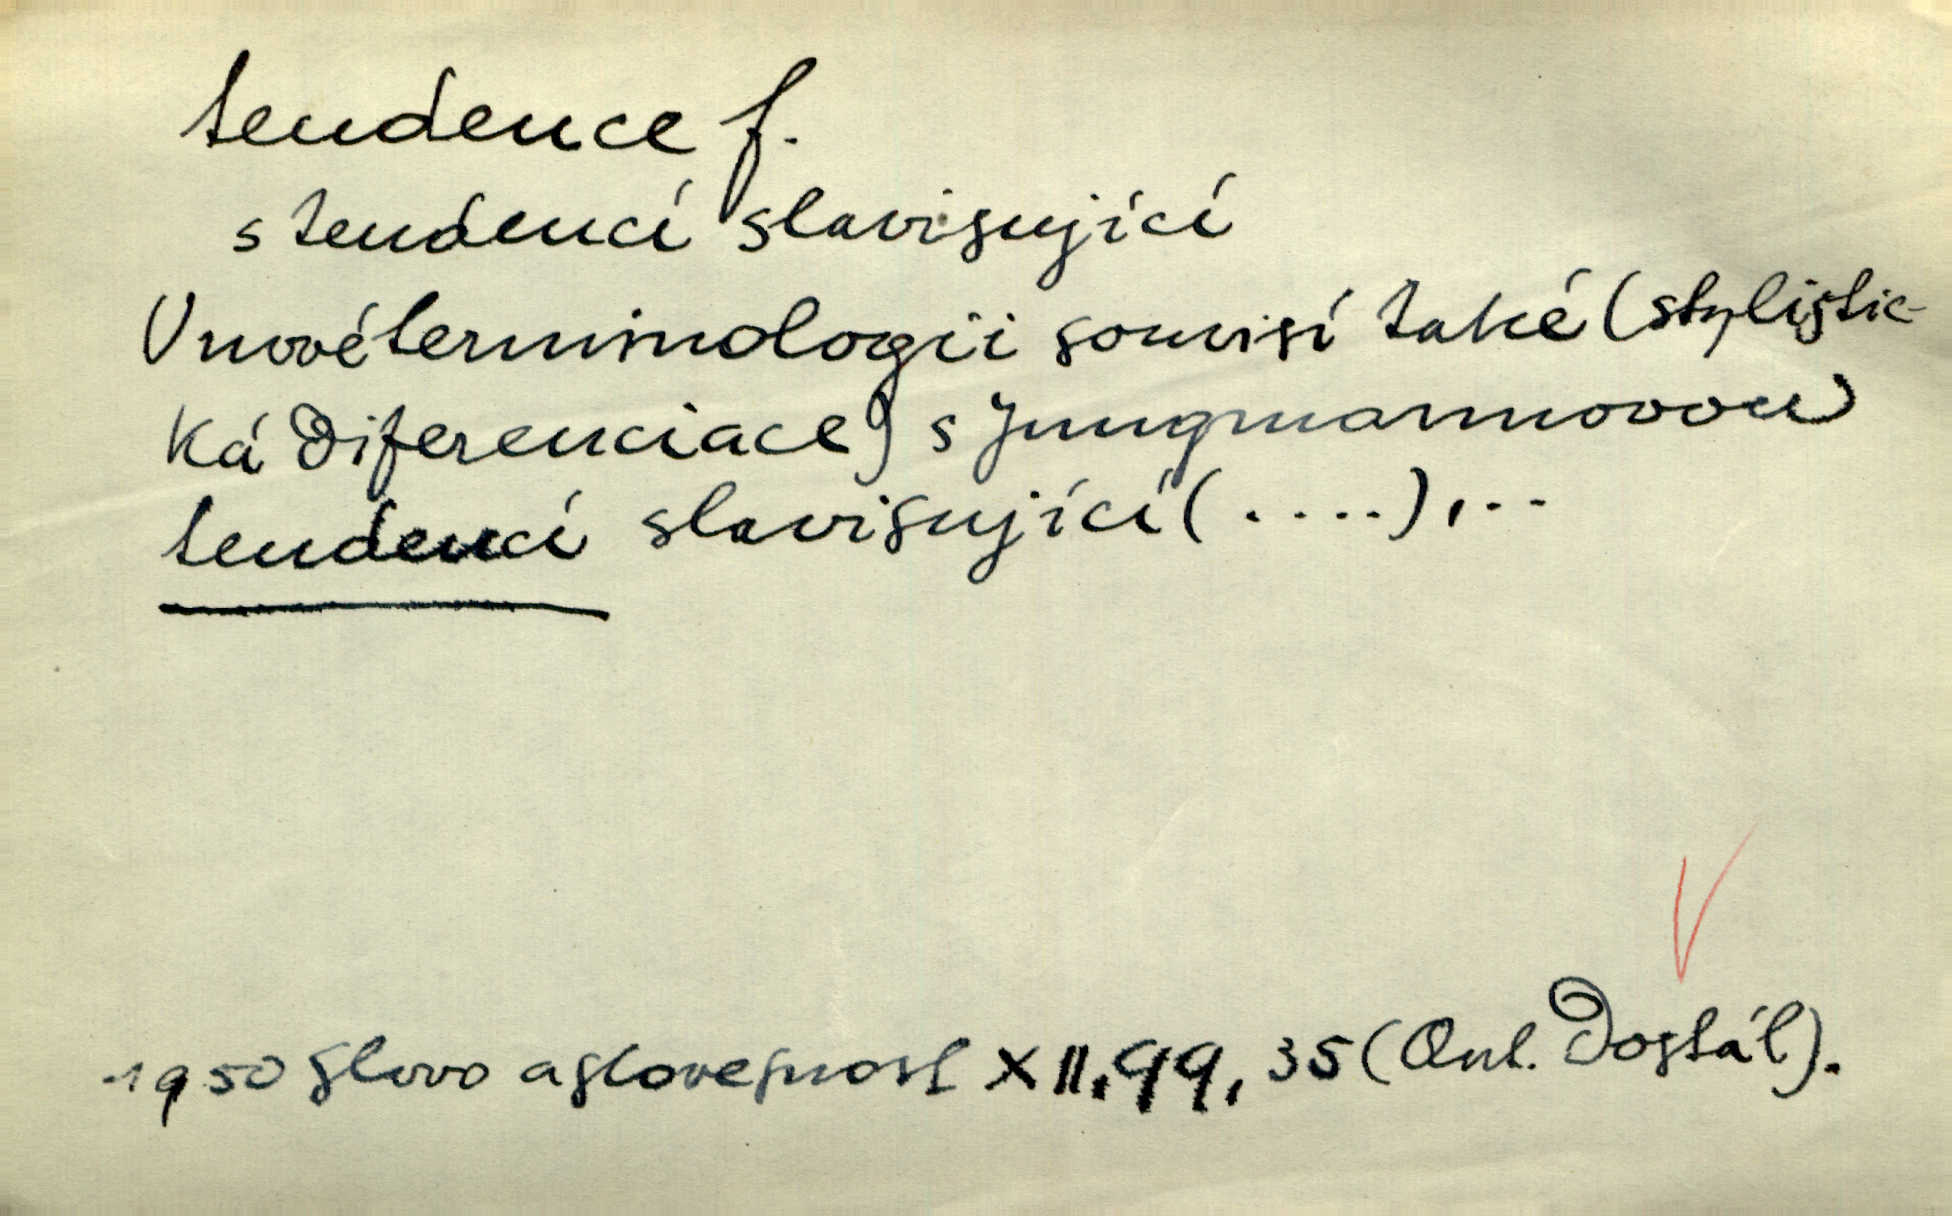 tendence f.
s tendencí slavisující
V nové terminologii souvisí také (stylistic-
ká diferenciace) s Jungmannovou
tendencí slavisující (....),..
1950 Slovo a slovesnost XII, 49, 35 (Ant. Dostál).